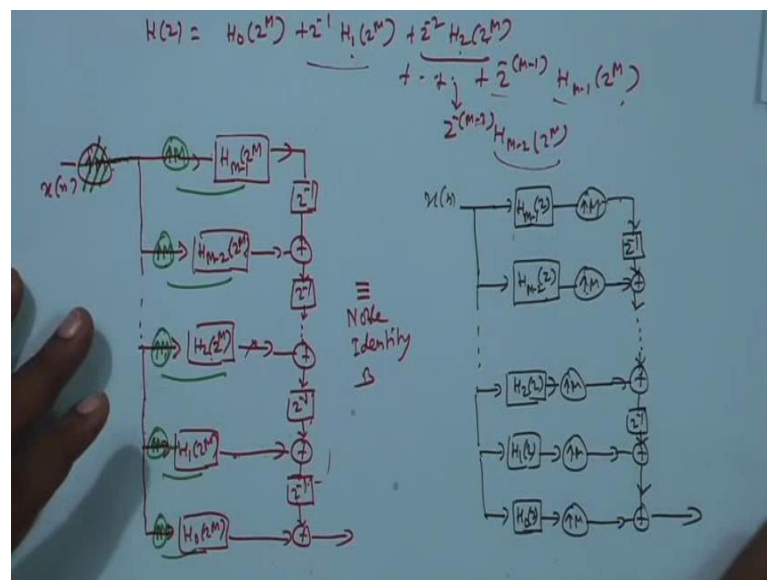 H(z) = H₀(z^M) + z⁻¹ H₁(z^M) + z⁻² H₂(z^M)
+ - + . + z^-(M-1) H_M-1(z^M)
z^-(M-2) H_M-2(z^M)
x(n)
↑M H_M-1(z^M
z⁻¹
↑M H_M-2(z^M) +
z⁻¹
↑M H₂(z^M) +
z⁻¹
↑M H₁(z^M) +
z⁻¹
↑M H₀(z^M) +
≡
Noble
Identity
x(n) H_M-1(z) ↑M
z⁻¹
H_M-2(z) ↑M +
H₂(z) ↑M +
z⁻¹
H₁(z) ↑M +
H₀(z) ↑M +